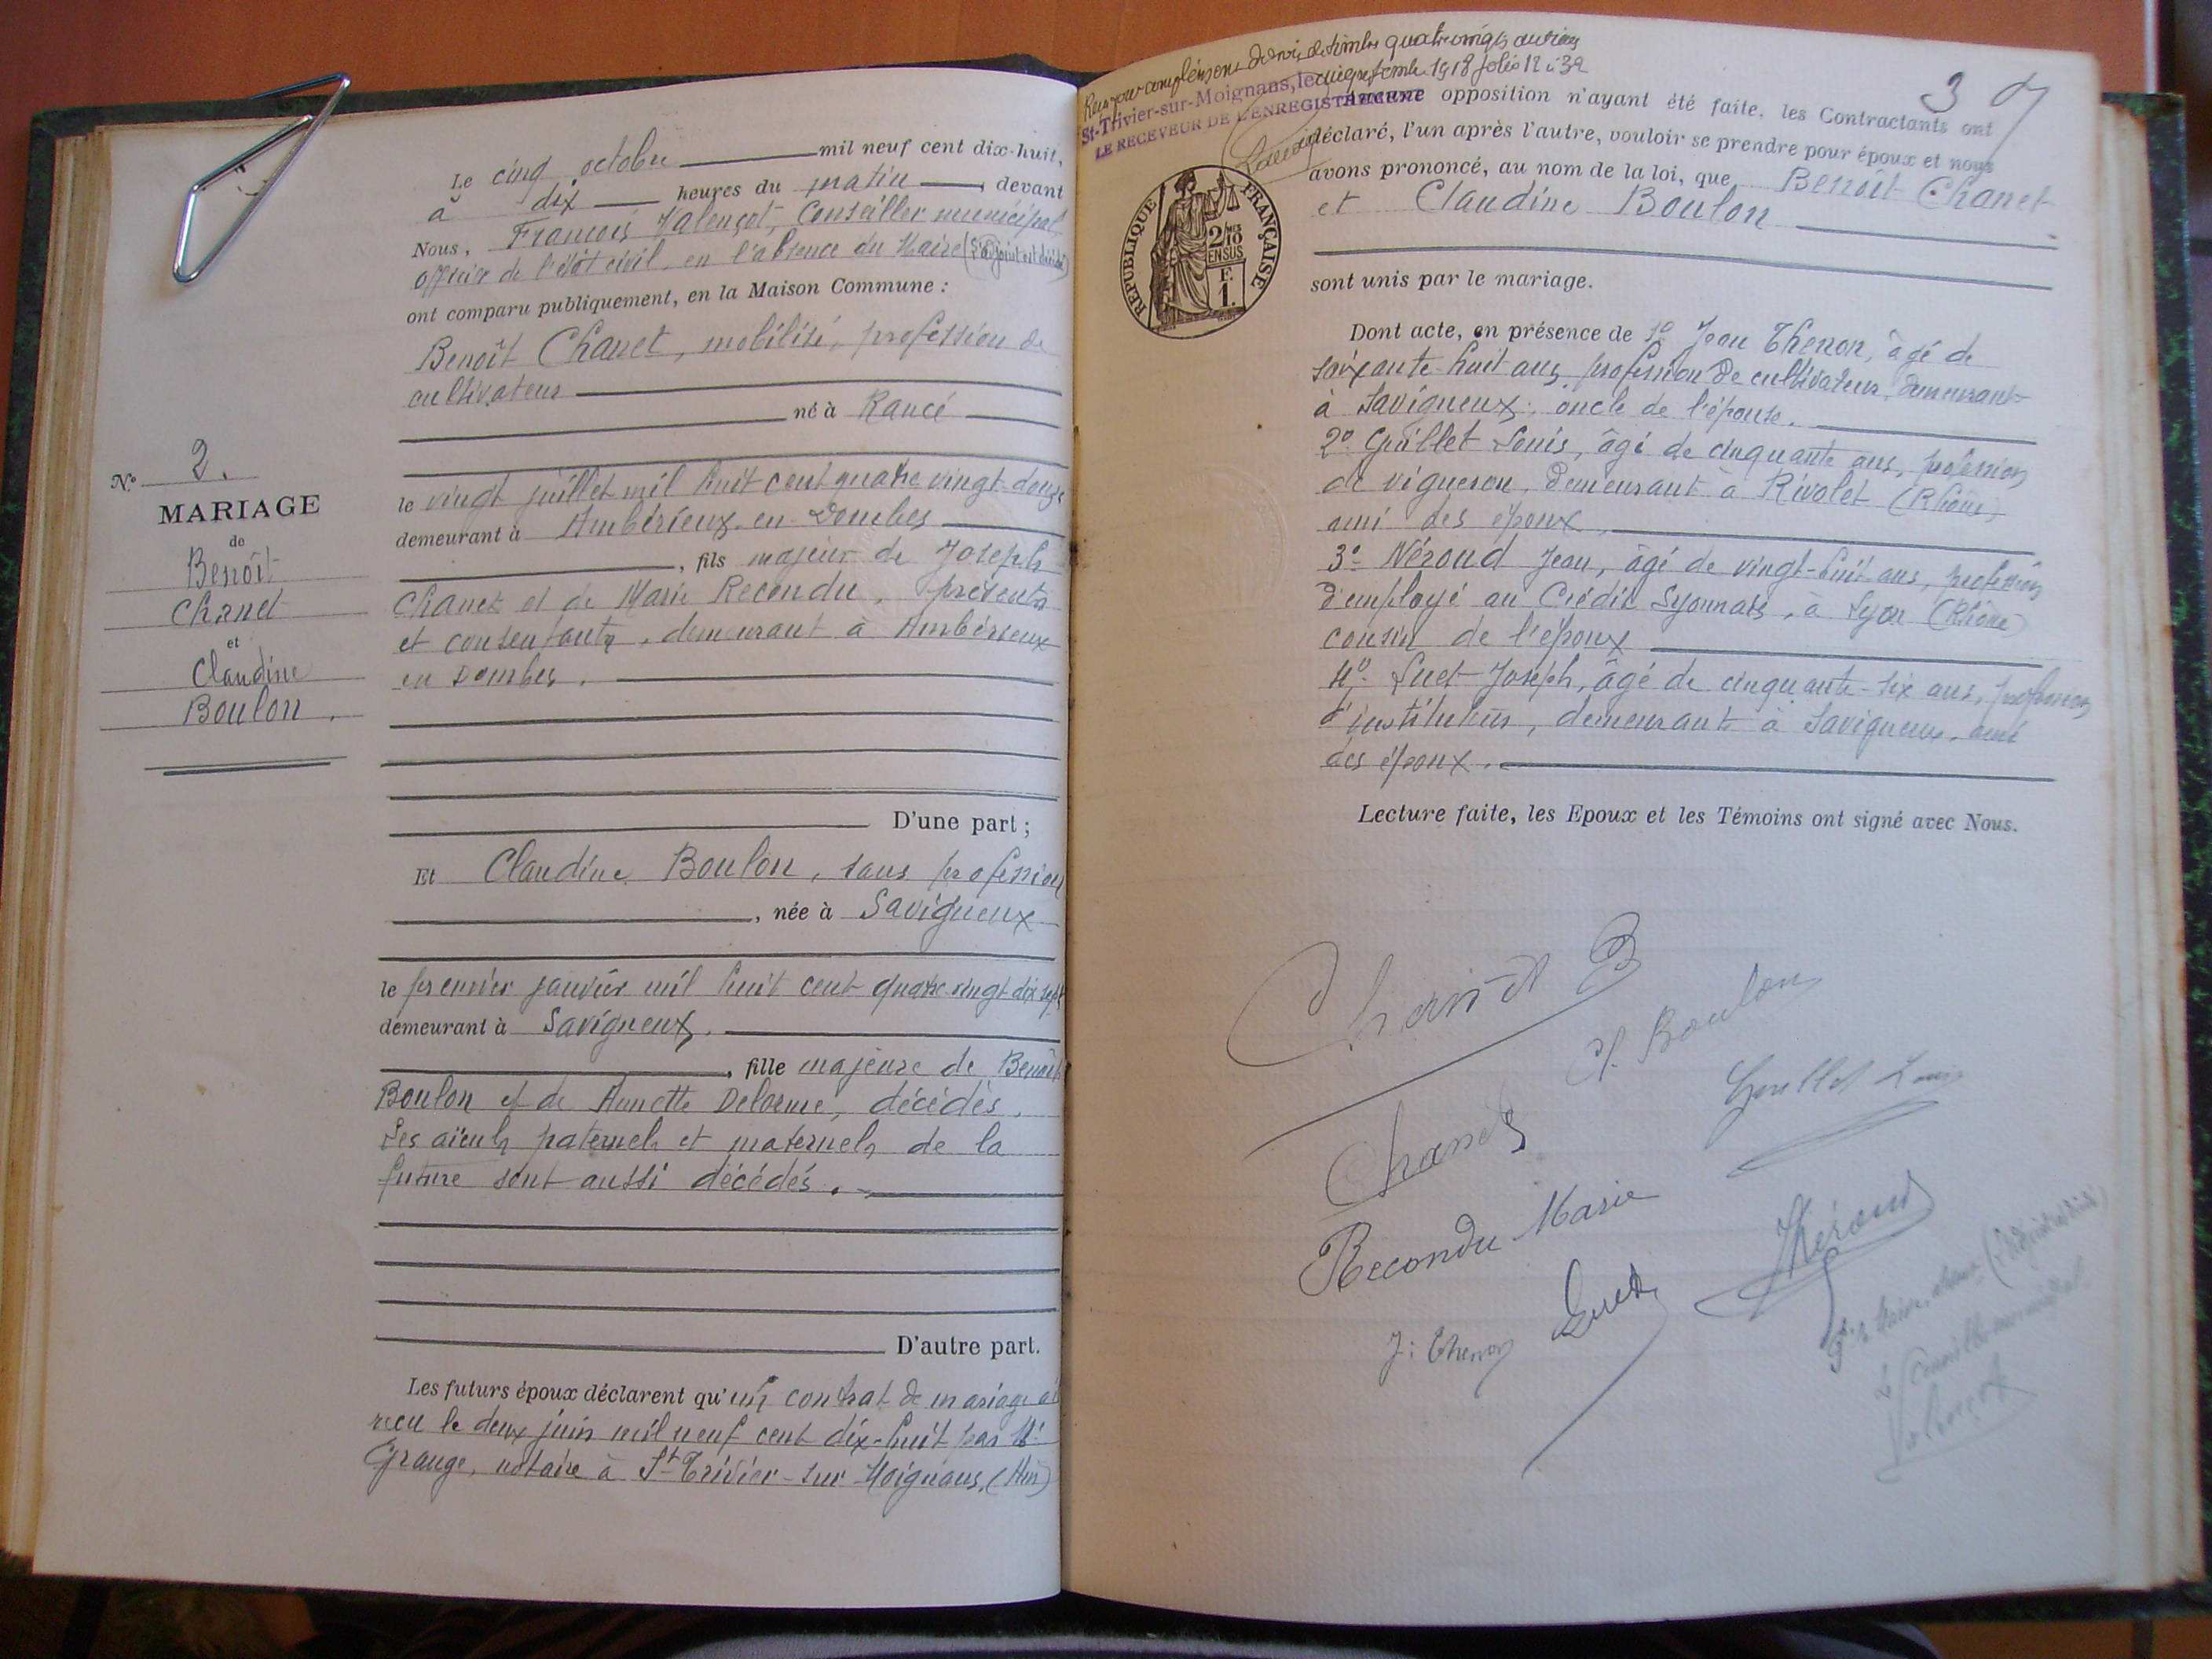 Le cinq octobre mil neuf cent dix-huit,
à dix heures du matin, devant
Nous, François Valençot, Conseiller municipal
officier de l'état civil en l'absence du Maire (l'adjoint est décédé)
ont comparu publiquement, en la Maison Commune :
Benoît Chanet, mobilisé, profession de
cultivateur
né à Rancé
le vingt juillet mil huit cent quatre vingt-douze
demeurant à Ambérieux-en-Dombes
, fils majeur de Joseph
Chanet et de Marie Recondu, présents
et consentants, demeurant à Ambérieux
en Dombes.
D'une part ;
Nº 2.
MARIAGE
de
Benoît
Chanet
et
Claudine
Boulon.
Et Claudine Boulon, sans profession
, née à Savigneux
le premier janvier mil huit cent quatre vingt dix sept
demeurant à Savigneux.
, fille majeure de Benoît
Boulon et de Annette Delorme, décédés.
Les aïeuls paternels et maternels de la
future sont aussi décédés.
D'autre part.
Les futurs époux déclarent qu'un contrat de mariage a été
reçu le deux juin mil neuf cent dix-huit par Me
Grange, notaire à St-Trivier-sur-Moignans, (Ain)
Reçu pour complément de droit de timbre quatre vingts
St-Trivier-sur-Moignans, le septembre 1918 folio 12
LE RECEVEUR DE L'ENREGISTREMENT
3
Aucune opposition n'ayant été faite, les Contractants ont
déclaré, l'un après l'autre, vouloir se prendre pour époux et nous
avons prononcé, au nom de la loi, que Benoît Chanet
et Claudine Boulon
sont unis par le mariage.
RÉPUBLIQUE FRANÇAISE
2/10
EN SUS
F.
1.
Dont acte, en présence de 1º Jean Thenon, âgé de
soixante-huit ans, profession de cultivateur, demeurant
à Savigneux, oncle de l'épouse.
2º Guillet Louis, âgé de cinquante ans, profession
de vigneron, demeurant à Rivolet (Rhône)
ami des époux,
3º Néroud Jean, âgé de vingt-huit ans, profession
d'employé au Crédit Lyonnais, à Lyon (Rhône)
cousin de l'époux
4º Luet Joseph, âgé de cinquante-six ans, profession
d'instituteur, demeurant à Savigneux, ami
des époux.
Lecture faite, les Epoux et les Témoins ont signé avec Nous.
Chanet B
Cl. Boulon
Chanet
Guillet Louis
Recondu Marie
JNéroud
Luet
J. Thenon
Pr le Maire, absent (l'adjoint décédé)
Le Conseiller municipal
Valençot